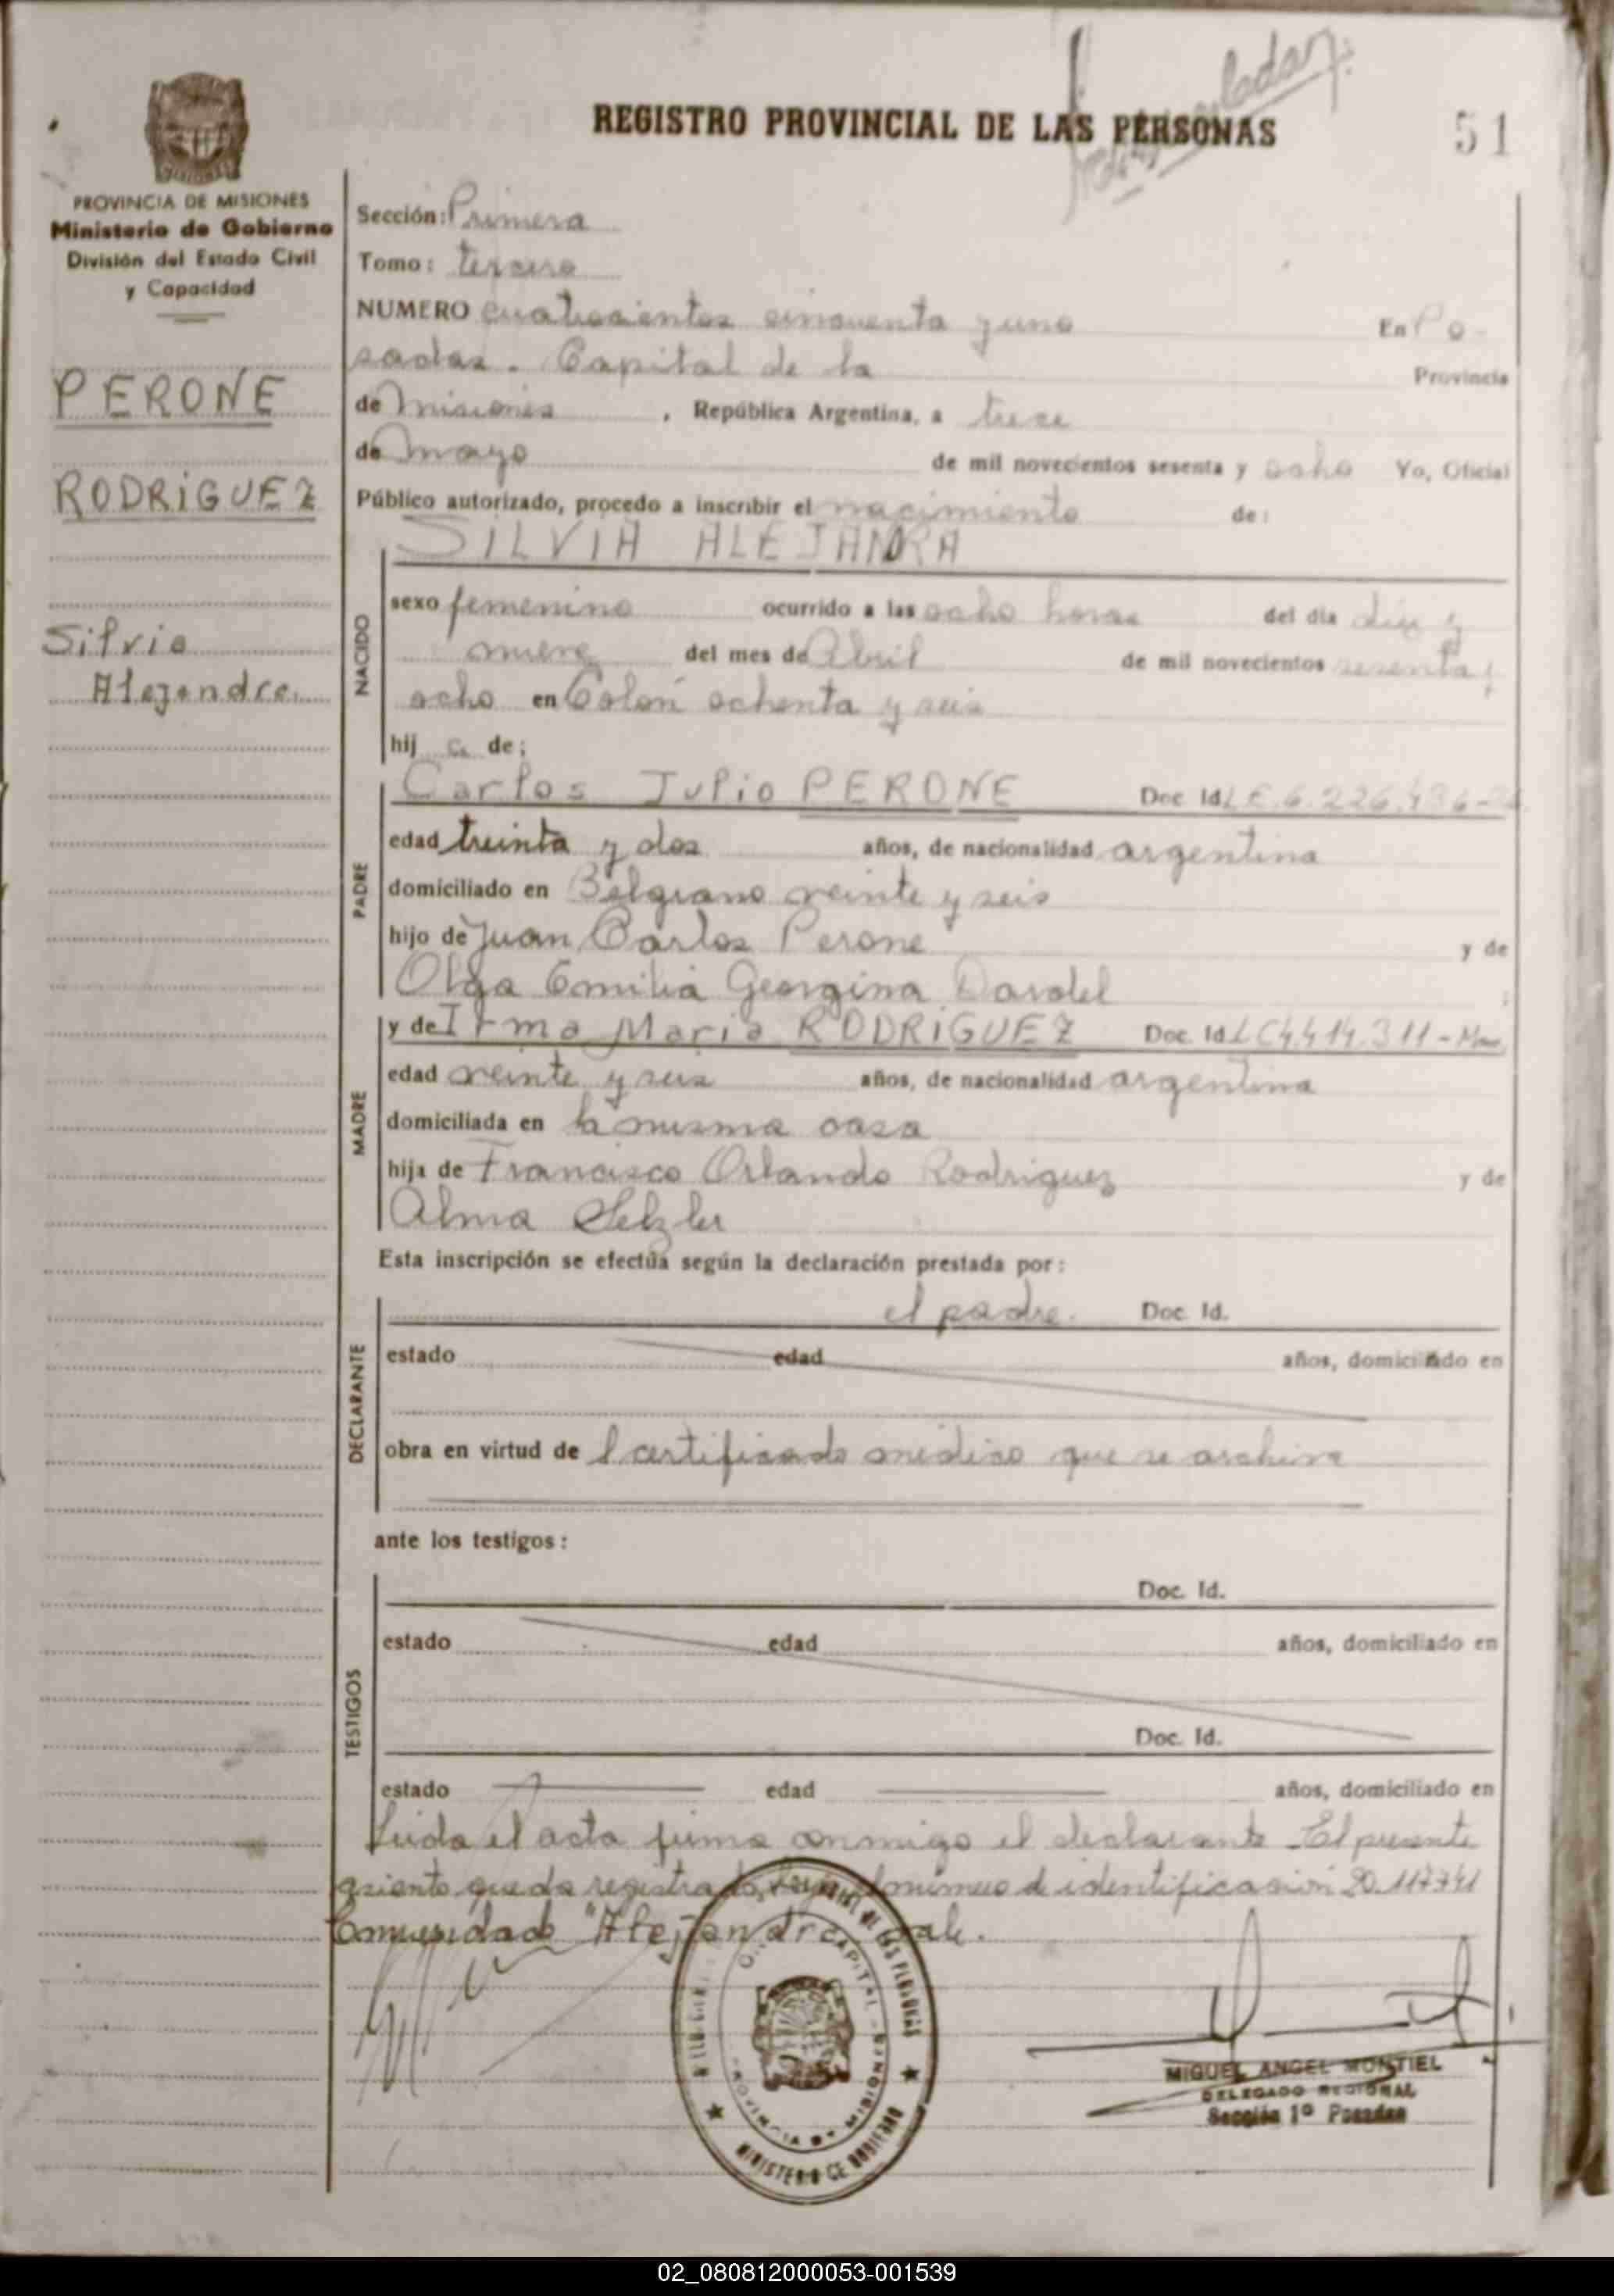 REGISTRO PROVINCIAL DE LAS PERSONAS
51
PROVINCIA DE MISIONES
Ministerio de Gobierno
División del Estado Civil
y Capacidad
PERONE
RODRIGUEZ
Silvia
Alejandra
Sección: Primera
Tomo: tercero
NUMERO cuatrocientos cincuenta y uno En Po-
sadas. Capital de la Provincia
de Misiones, República Argentina, a trece
de mayo de mil novecientos sesenta y ocho Yo, Oficial
Público autorizado, procedo a inscribir el nacimiento de:
SILVIA ALEJANRA
NACIDO
sexo femenino ocurrido a las ocho horas del dia diez y
nueve del mes de Abril de mil novecientos sesenta y
ocho en Colón ochenta y seis
hija de:
PADRE
Carlos Julio PERONE Doc. Id. L E. 6.226.436-
edad treinta y dos años, de nacionalidad argentina
domiciliado en Belgrano veinte y seis
hijo de Juan Carlos Perone y de
Olga Emilia Georgina Dardel
MADRE
y de Irma Maria RODRIGUEZ Doc. Id. LC 4.414.311-
edad veinte y seis años, de nacionalidad argentina
domiciliada en la misma casa
hija de Francisco Orlando Rodriguez y de
Alma Selzler
Esta inscripción se efectúa según la declaración prestada por:
DECLARANTE
el padre. Doc. Id.
estado edad años, domiciliado en
obra en virtud de l certificado médico que se archiva
ante los testigos:
TESTIGOS
Doc. Id.
estado edad años, domiciliado en
Doc. Id.
estado edad años, domiciliado en
Leida el acta firma conmigo el declarante. El presente
asiento queda registrado bajo número de identificación 20.117.741
Enmendado "Alejandra" vale.
CAPITAL
PROVINCIA DE MISIONES
MINISTERIO DE GOBIERNO
MIGUEL ANGEL MONTIEL
DELEGADO REGIONAL
Sección 1º Posadas
02_080812000053-001539